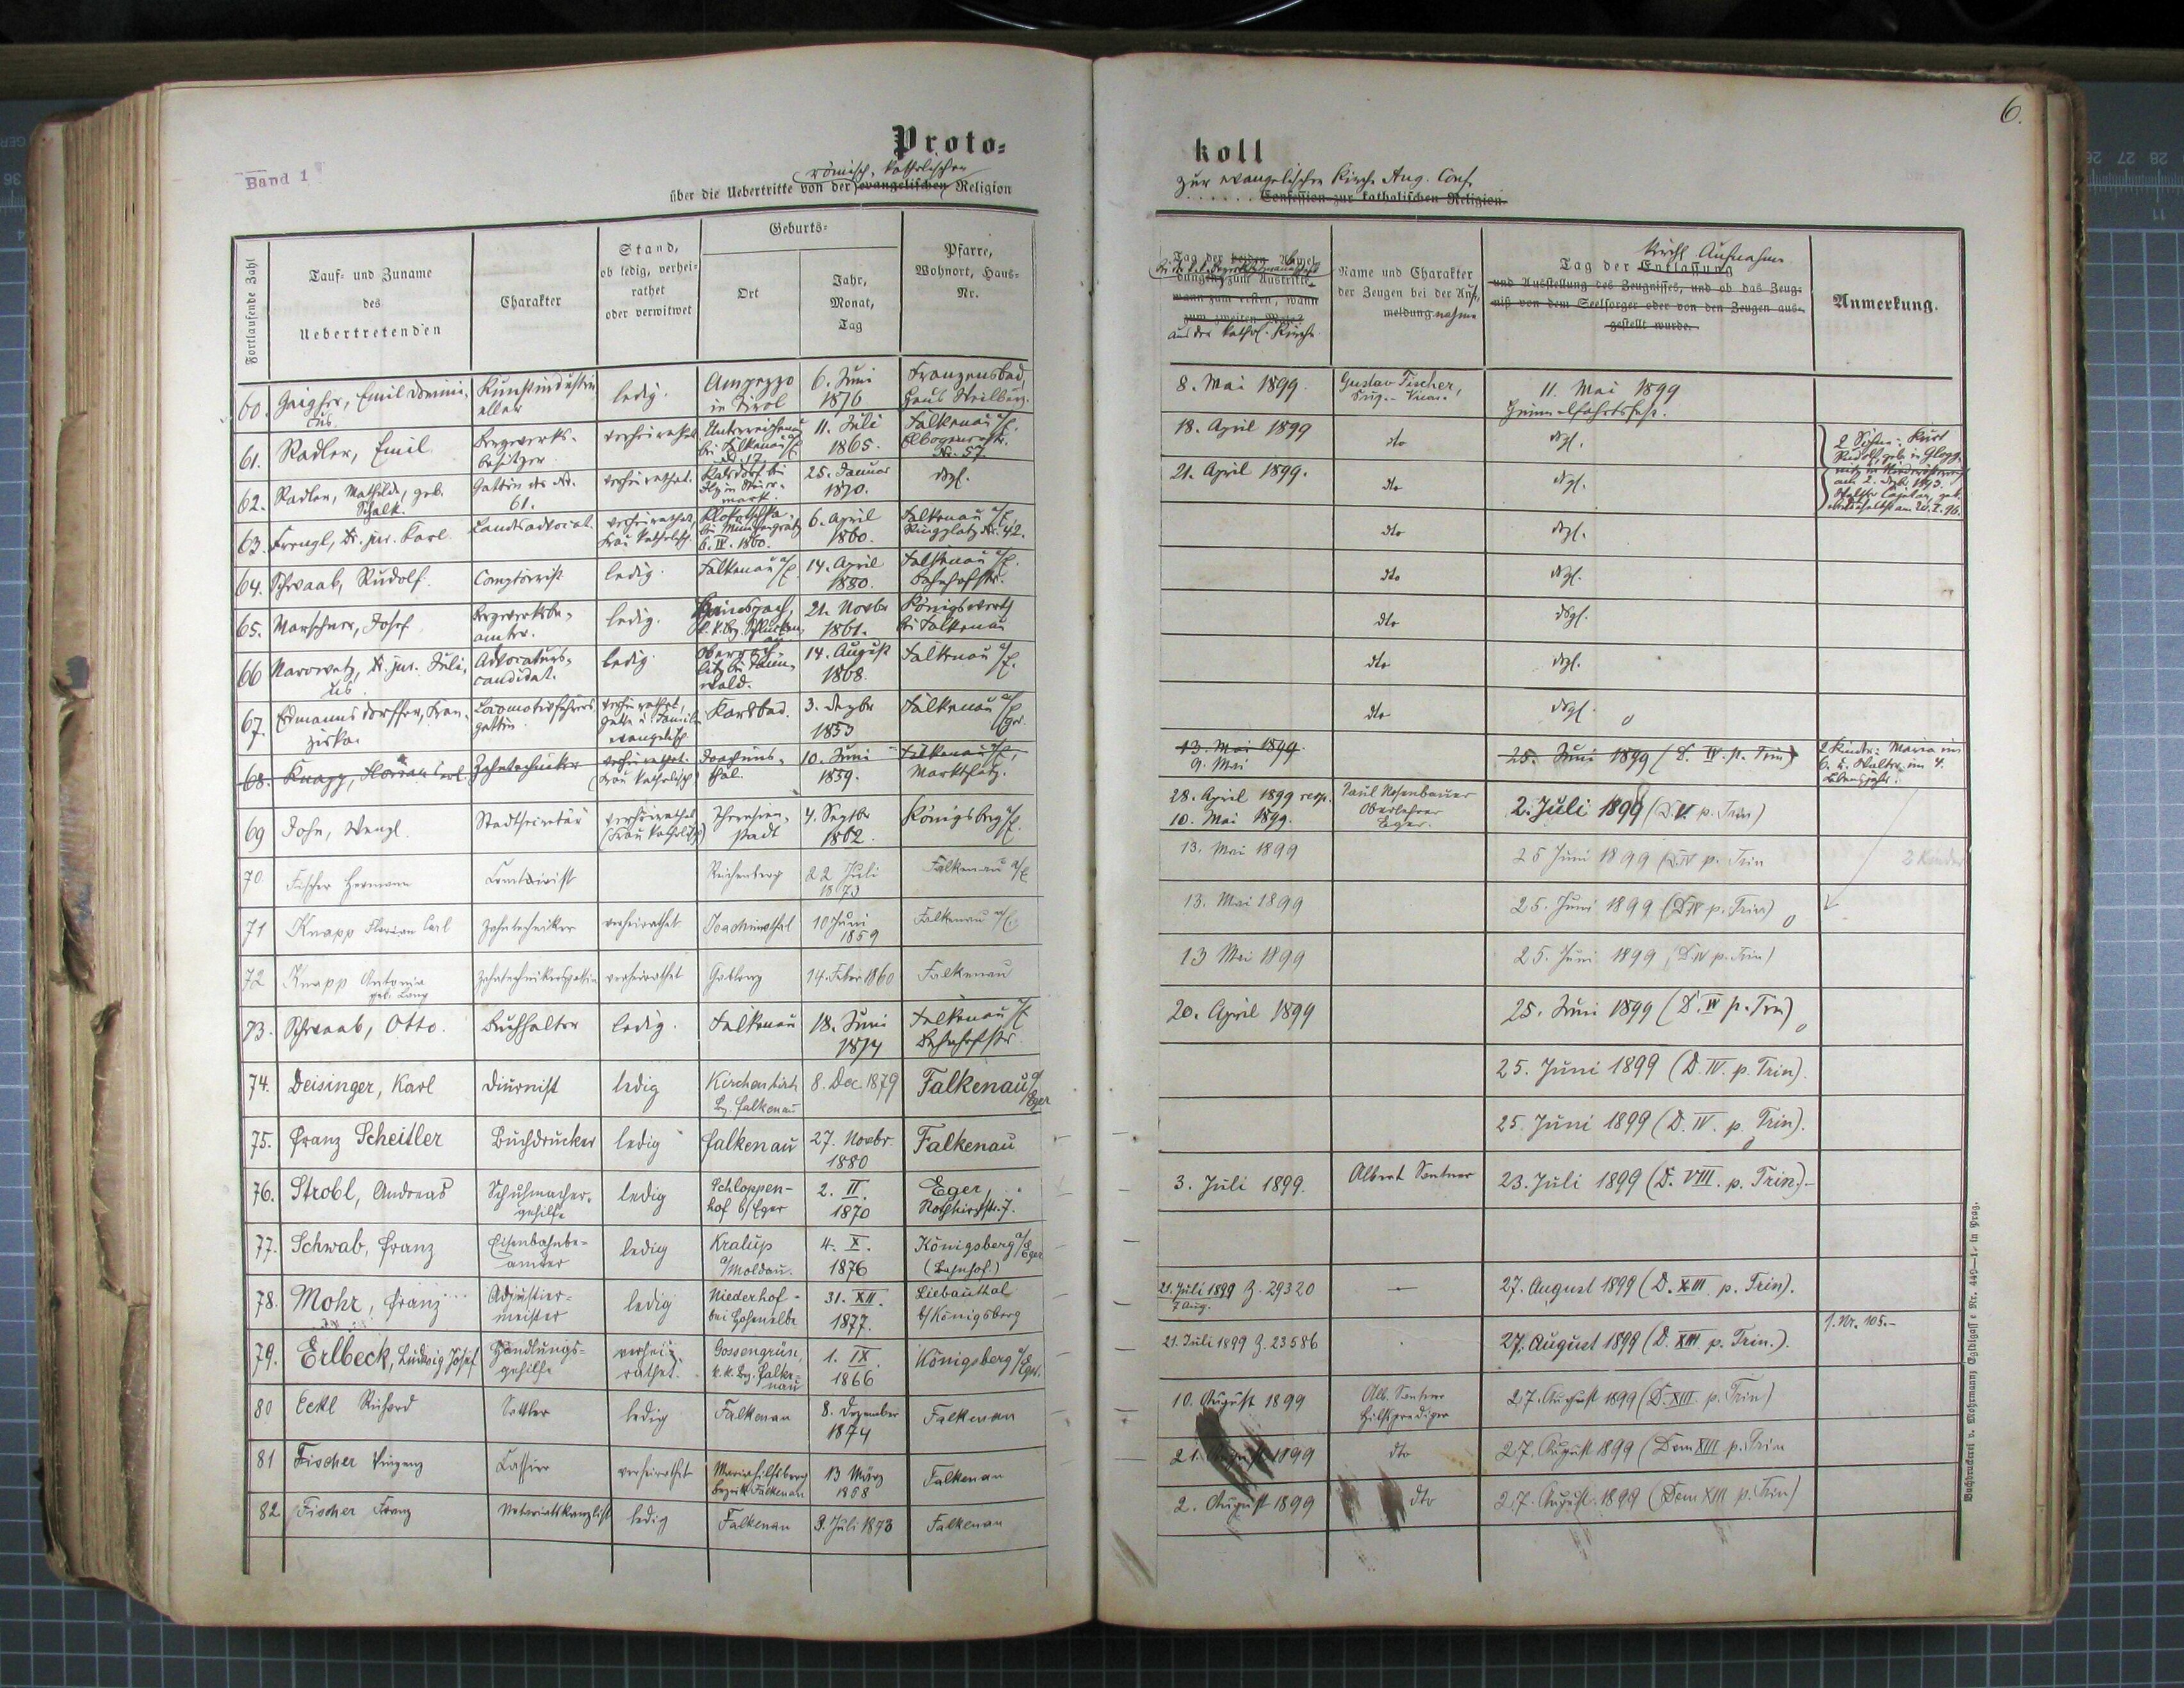 6.
Band 1
Proto=
koll
römisch-katholischen
über die Uebertritte von der evangelischen Religion
zur evangelischen Kirche Aug. Conf.
Confession zur katholischen Religion.
Fortlaufende Zahl
Tauf- und Zuname
des
Uebertretenden
Charakter
Stand,
ob ledig, verhei-
rathet
oder verwitwet
Geburts=
Ort
Jahr,
Monat,
Tag
Pfarre,
Wohnort, Haus-
Nr.
Tag der beiden Anmel-
dungen zum Austritte,
wann zum ersten, wann
zum zweiten Male?
aus der kathol. Kirche
Name und Charakter
der Zeugen bei der Auf-
meldung nahme
kirchl. Aufnahme
Tag der Entlassung
und Ausstellung des Zeugnisses, und ob das Zeug-
niß von dem Seelsorger oder von den Zeugen aus-
gestellt wurde.
Anmerkung.
60. Emil ledig. Ampezzo in Tirol 6. Juni 1876 Franzensbad
8. Mai 1899. Gustav Fischer, 11. Mai 1899 Himmelfahrtsfest.
61. Radler, Emil Bergwerks-besitzer verheirathet 11. Juli 1865. Falkenau a/E.
18. April 1899 dto dsgl.
62. Radler, Mathilde, geb. Schalk. Gattin des Nr. 61. verheirathet. 25. Januar 1870. dsgl.
21. April 1899. dto dsgl.
63. Dr. jur. Karl Landesadvocat. verheirathet, Frau katholisch. 6. IV. 1860. 6. April 1860. Falkenau a/E. Ringplatz Nr. 42.
dto dsgl.
64. Schwaab, Rudolf. Comptoirist ledig. Falkenau a/E. 14. April 1880. Falkenau a/E. Bahnhofstr.
dto dsgl.
65. Marschner, Josef Bergwerksbe-amter. ledig. 21. Novbr 1861. Königswerth bei Falkenau
dto dsgl.
66 Dr. jur. Juli-us Advocaturs-candidat. ledig 14. August 1868. Falkenau a/E.
dto dsgl.
67. Erdmannsdorffer, Fran-ziska. Locomotivführers-gattin verheirathet, evangelisch Karlsbad. 3. Dezbr 1853 Falkenau a/Eger.
dto dsgl.
68. Knapp, Florian Carl. Zahntechniker verheirathet (Frau katholisch) Joachims-thal. 10. Juni 1859. Falkenau a/E., Marktplatz.
13. Mai 1899. 9. Mai 25. Juni 1899 (D. IV. p. Trin) 2 Kinder: Maria im 6. u. Walter im 4. Lebensjahr.
69 John, Wenzl. Stadtsecretär verheirathet (Frau katholisch) Theresien-stadt 4. Septbr 1862. Königsberg a/E.
28. April 1899 resp. 10. Mai 1899. Paul Rosenbauer Oberlehrer Eger. 2. Juli 1899 (D. V. p. Trin)
70. Fischer Hermann Comtoirist Reichenberg 22 Juli 1873 Falkenau a/E
13. Mai 1899 25 Juni 1899 (D.IV p. Trin 2 Kinder
71 Knapp Florian Carl Zahntechniker verheirathet Joachimsthal 10 Juni 1859 Falkenau a/E.
13. Mai 1899 25. Juni 1899 (D IV p. Trin)
72 Knapp Antonia geb. Lang Zahntechnikersgattin verheirathet Gablonz 14. Feber 1860 Falkenau
13 Mai 1899 25. Juni 1899 (D. IV p. Trin)
73. Schwaab, Otto. Buchhalter ledig. Falkenau 18. Juni 1874 Falkenau a/E Bahnhofstr.
20. April 1899 25. Juni 1899 (D. IV p. Trin)
74. Deisinger, Karl Diurnist ledig Kirchenbirk Bz. Falkenau 8. Dec 1879 Falkenau a/Eger
25. Juni 1899 (D. IV. p. Trin).
75. Franz Scheitler Buchdrucker ledig Falkenau 27. Novbr. 1880 Falkenau
25. Juni 1899 (D. IV. p. Trin).
76. Strobl, Andreas Schuhmacher-gehilfe ledig Schloppen-hof b/Eger 2. II. 1870 Eger,
3. Juli 1899. Albert Sentner 23. Juli 1899 (D. VIII. p. Trin)-
77. Schwab, Franz Eisenbahnbe-amter ledig Kralup a/Moldau. 4. X. 1876 Königsberg a/Eger (Bahnhof.)
78. Mohr, Franz Adjustier-meister ledig Niederhof- bei Hohenelbe 31. XII. 1877. Liebauthal b/Königsberg
21. Juli 1899 Z. 29320 7. Aug. — 27. August 1899 (D. XIII. p. Trin).
79. Erlbeck, Ludwig Josef Handlungs-gehilfe verhei-rathet. Gossengrün, k. k. Bez. Falke-nau 1. IX. 1866 Königsberg a/Eger.
21. Juli 1899 Z. 23586 27. August 1899 (D. XIII. p. Trin.). s. Nr. 105.-
80 Eckl Richard Sattler ledig Falkenau 8. Dezember 1874 Falkenau
10. August 1899 Alb. Sentner Hilfsprediger 27. August 1899 (D. XIII p. Trin)
81 Fischer Vinzenz Cassier verheirathet Mariahilfsberg Bezirk Falkenau 13 März 1868 Falkenau
21. August 1899 dto 27. August 1899 (Dom XIII p. Trin
82 Fischer Franz Notariatskanzlist ledig Falkenau 3. Juli 1873 Falkenau
2. August 1899 dto 27. August 1899 (Dom XIII p. Trin)